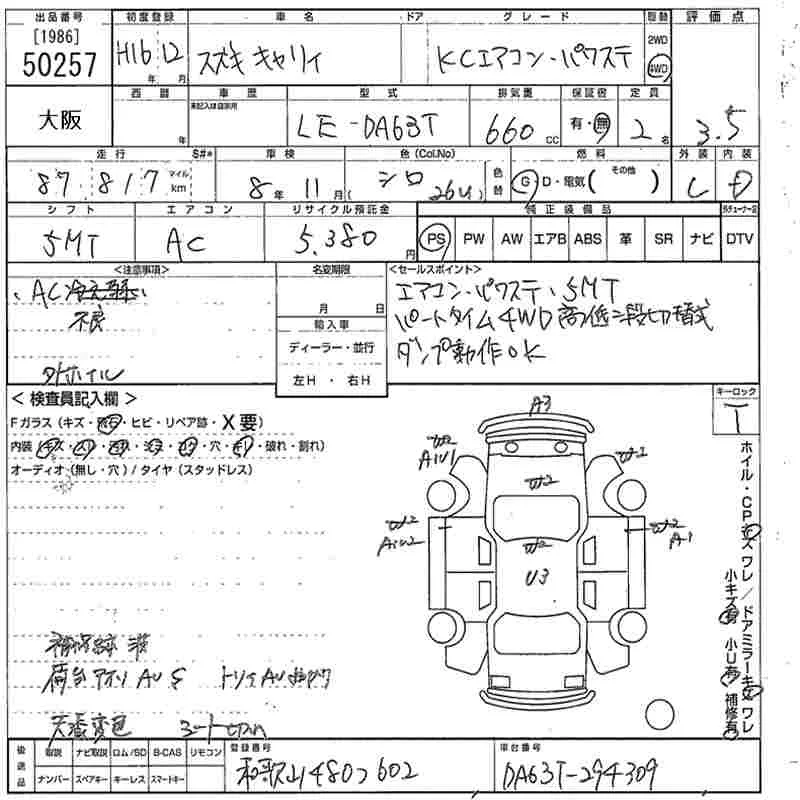 出品番号 初度登録 車名 ドア グレード 駆動 評価点
[1986] 50257 H16 年 12 月 スズキ キャリイ KCエアコン・パワステ 2WD 4WD
大阪 西暦 年 車歴 未記入は自家用 型式 LE-DA63T 排気量 660 cc 保証書 有・無 定員 2 名 3.5
走行 S#* 車検 色(Col.No) 色替 燃料 外装 内装
87,817 マイル km 8 年 11 月 ( シロ 26U ) G D・電気( その他 ) C D
シフト エアコン リサイクル預託金 純正装備品
5MT AC 5,380 円 PS PW AW エアB ABS 革 SR ナビ DTV
<注意事項> 名変期限 <セールスポイント>
AC 不良
月 日
エアコン・パワステ、5MT
輸入車
パートタイム4WD高低二段切替式
ディーラー・並行
ダンプ動作OK
左H ・ 右H
外ホイル
< 検査員記入欄 > キーロック
Fガラス(キズ・ ・ヒビ・リペア跡・X要)
内装( ・穴・ ・破れ・割れ)
オーディオ(無し・穴)/タイヤ(スタッドレス)
A3
A1U1 W2 W1
W2
W2 W2
A1W2 W2 A1
U3
ホイル・CPキズ ワレ/ドアミラーキズ ワレ
小キズ有 小U有 補修有
補修跡 波
荷台アオリ AU S トリイ AU
天張変色 シート切れ
後送品 取説 ナビ取説 ロム/SD B-CAS リモコン 登録番号 車台番号
ナンバー スペアキー キーレス スマートキー 和歌山480つ602 DA63T-294309